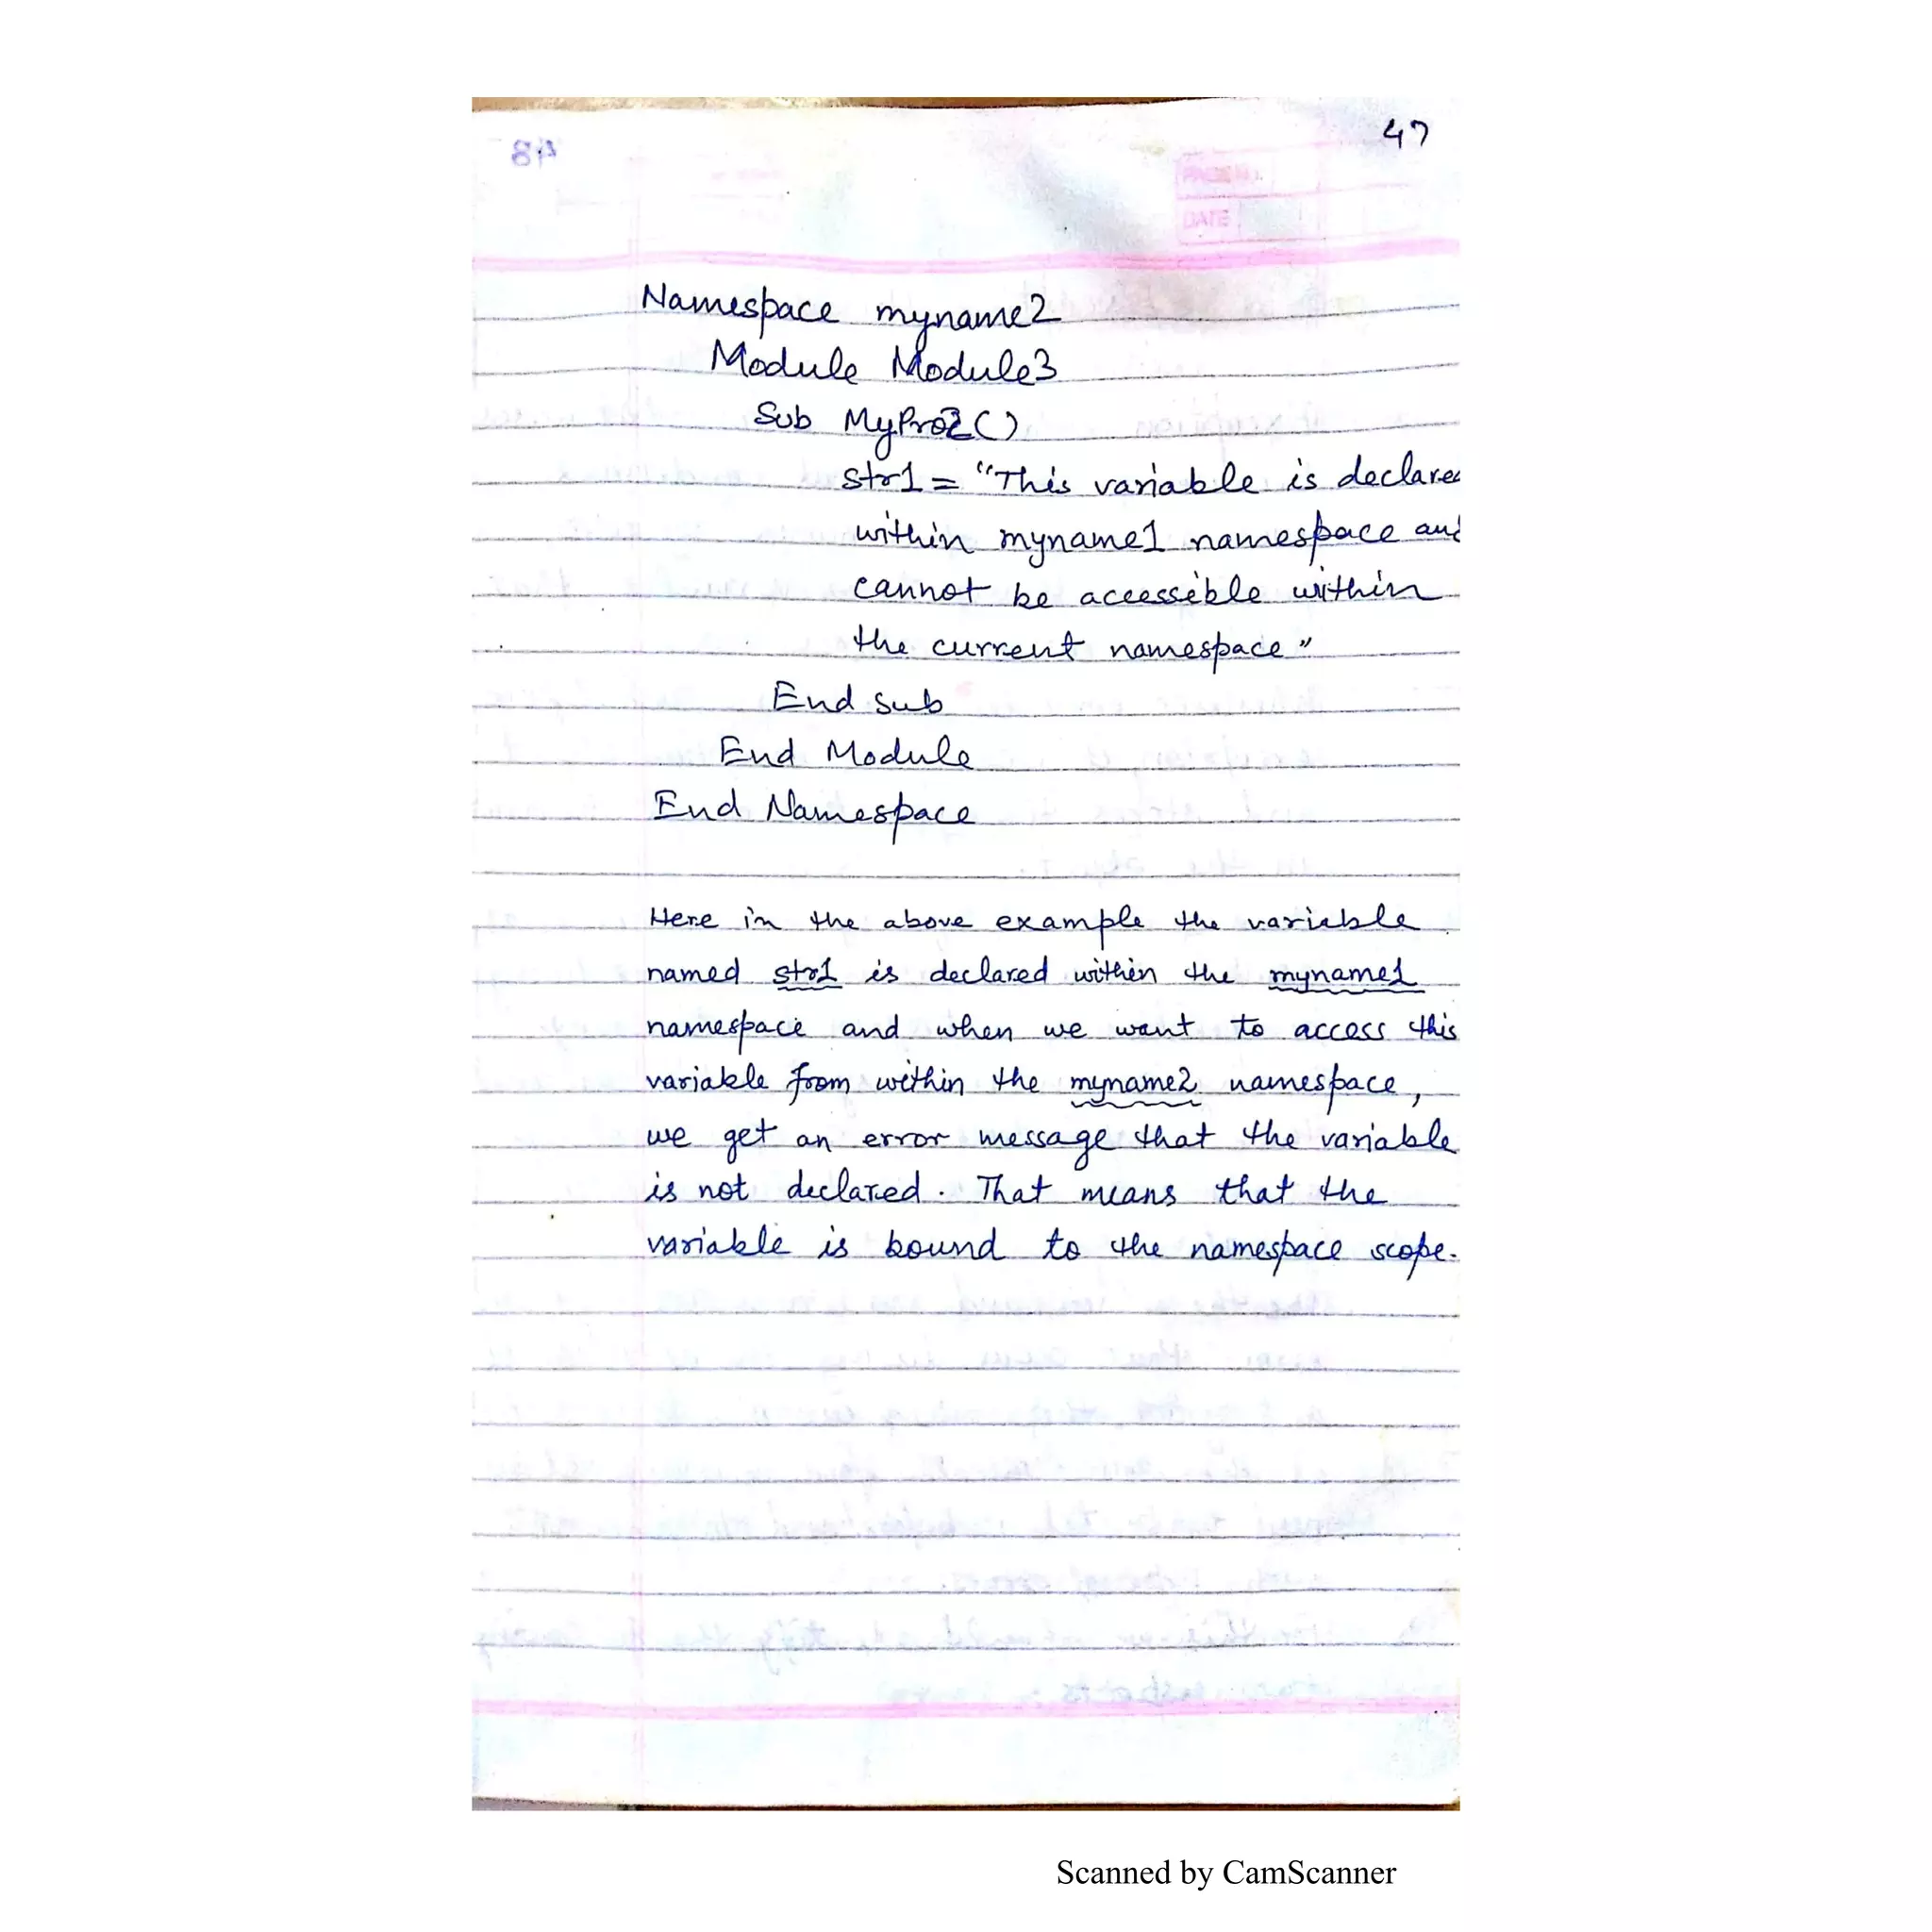 47
48
PAGE No.
DATE
Namespace myname2
Module Module3
Sub MyPro2()
str1 = "This variable is declare
within myname1 namespace and
cannot be accessible within
the current namespace"
End sub
End Module
End Namespace
Here in the above example the variable
named str1 is declared within the myname1
namespace and when we want to access this
variable from within the myname2 namespace,
we get an error message that the variable
is not declared. That means that the
variable is bound to the namespace scope.
Scanned by CamScanner